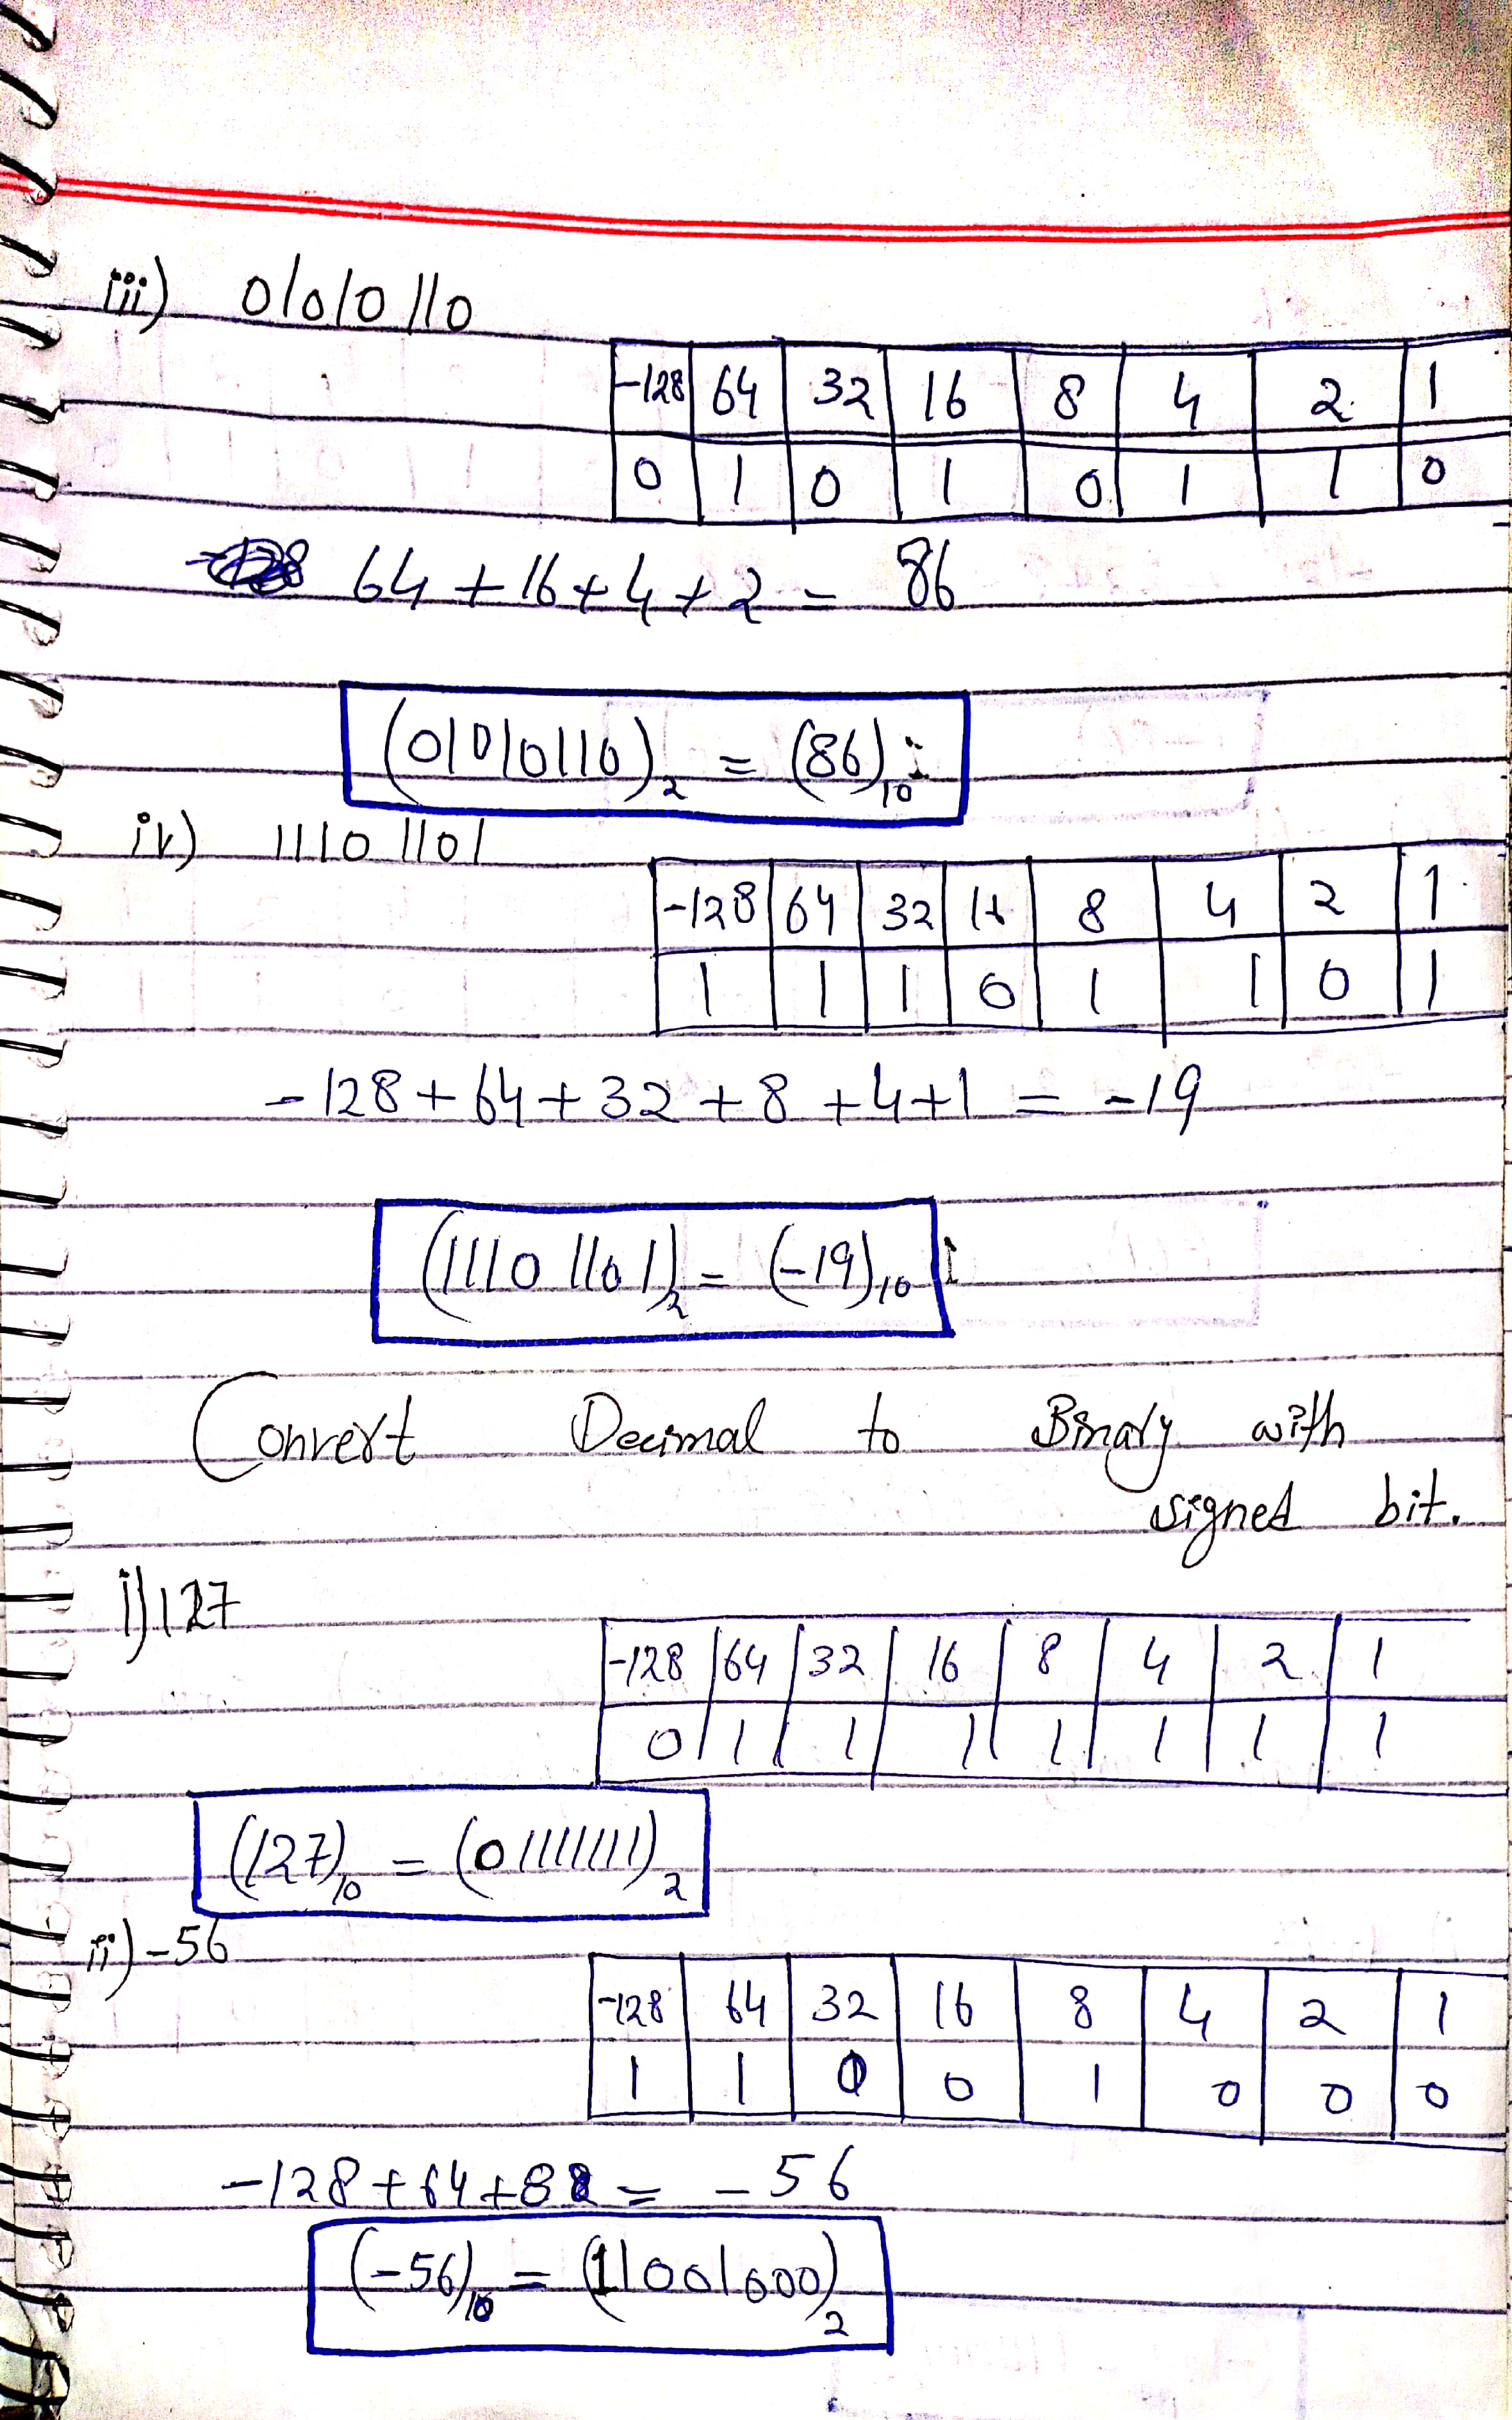 iii) 01010110
-128 64 32 16 8 4 2 1
0 1 0 1 0 1 1 0
64 + 16 + 4 + 2 = 86
(01010110)₂ = (86)₁₀
iv) 11101101
-128 64 32 16 8 4 2 1
1 1 1 0 1 1 0 1
-128 + 64 + 32 + 8 + 4 + 1 = -19
(11101101)₂ = (-19)₁₀
Convert Decimal to Binary with
signed bit.
i) 127
-128 64 32 16 8 4 2 1
0 1 1 1 1 1 1 1
(127)₁₀ = (01111111)₂
ii) -56
-128 64 32 16 8 4 2 1
1 1 0 0 1 0 0 0
-128 + 64 + 8 = -56
(-56)₁₀ = (11001000)₂